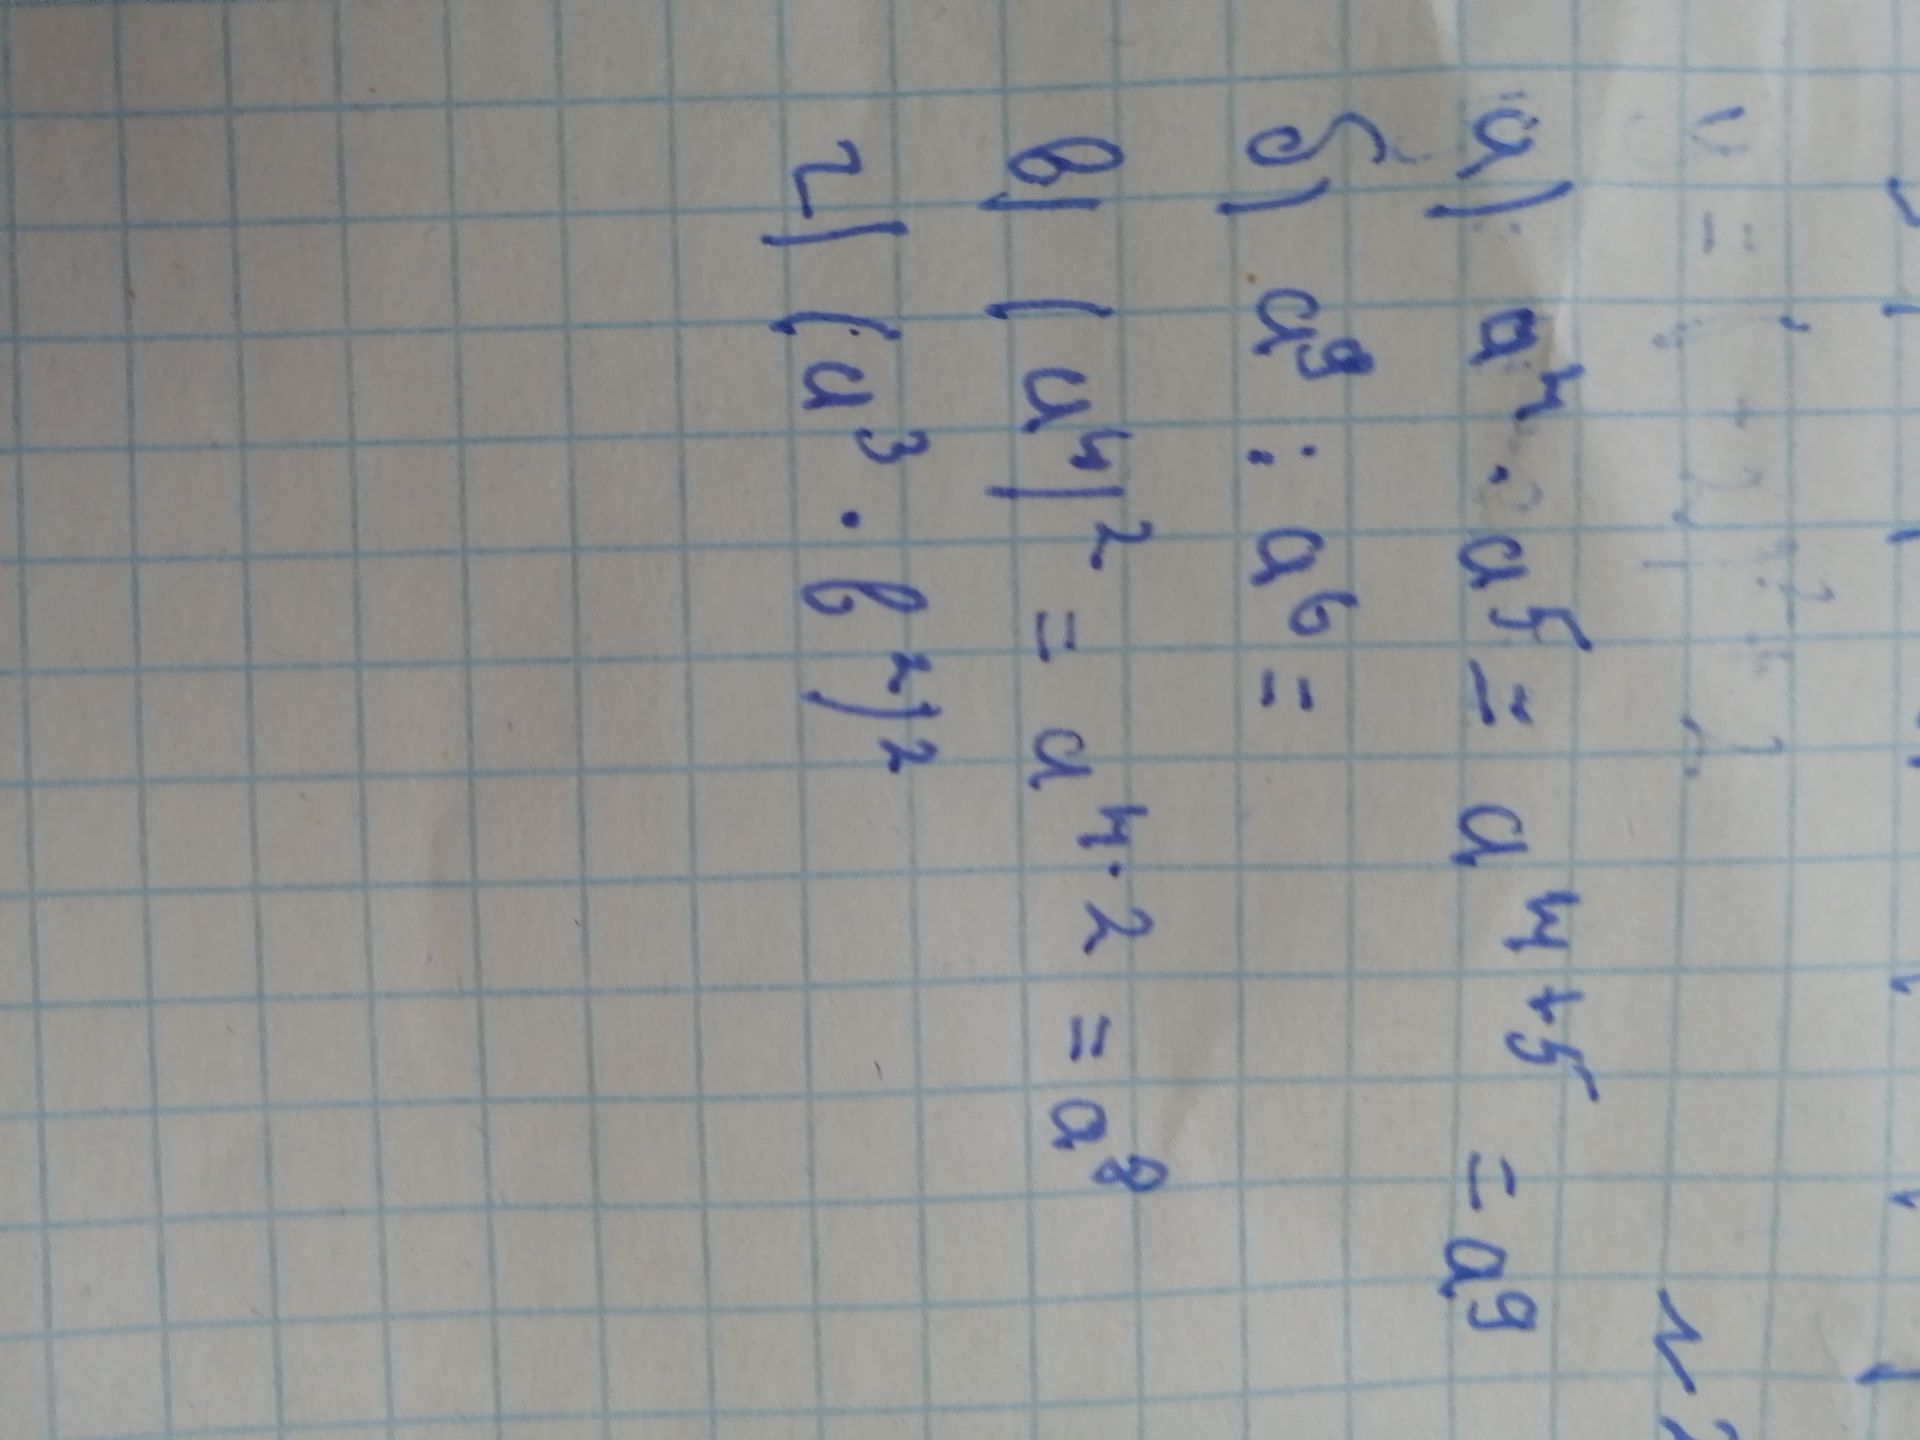 а) a⁴ · a⁵ = a⁴⁺⁵ = a⁹
б) a⁹ : a⁶ =
в) (a⁴)² = a⁴·² = a⁸
г) (a³ · b²)²